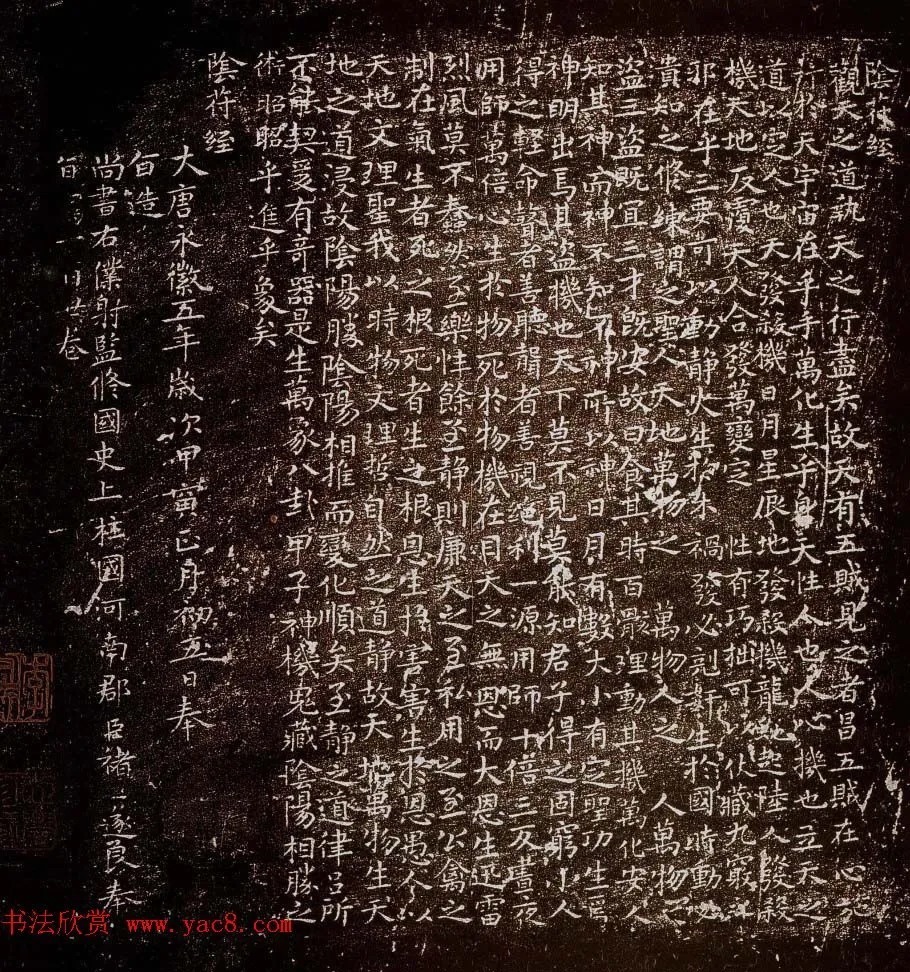 陰符經
觀天之道執天之行盡矣故天有五賊見之者昌五賊在心施
行於天宇宙在乎手萬化生乎身天性人也人心機也立天之
道以定人也天發殺機日月星辰地發殺機龍虵起陸人發殺
機天地反覆天人合發萬變定 性有巧拙可以伏藏九竅之
耶在乎三要可以動靜火生於木禍發必剋姧生於國時動必
潰知之修練謂之聖人天地萬物之 萬物人之 人萬物之
盜三盜既宜三才既安故曰食其時百骸理動其機萬化安人
知其神而神不知不神所以神日月有數大小有定聖功生焉
神明出焉其盜機也天下莫不見莫能知君子得之固窮小人
得之輕命瞽者善聽聾者善視絕利一源用師十倍三反晝夜
用師萬倍心生於物死於物機在目天之無恩而大恩生迅雷
烈風莫不蠢然至樂性餘至靜則廉天之至私用之至公禽之
制在氣生者死之根死者生之根恩生於害害生於恩愚人以
天地文理聖我以時物文理哲自然之道靜故天地萬物生天
地之道浸故陰陽勝陰陽相推而變化順矣至靜之道律呂所
不能契爰有奇器是生萬象八卦甲子神機鬼藏陰陽相勝之
術昭昭乎進乎象矣
陰符經
大唐永徽五年歲次甲寅正月初五日奉
旨造
尚書右僕射監修國史上柱國河南郡臣褚遂良奉
旨
书法欣赏 www.yac8.com